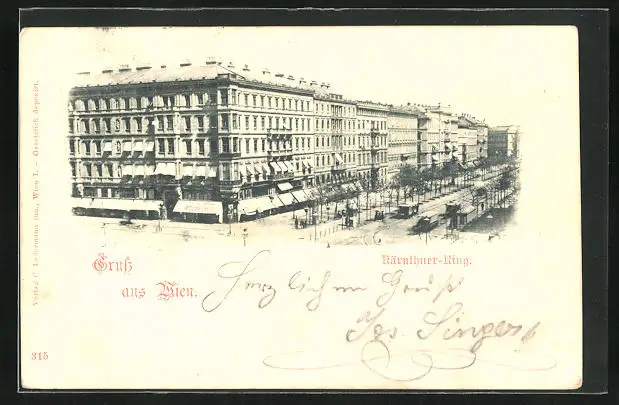 Kärnthner-Ring.
Gruß
aus Wien.
Herzlichen Gruß
Singer
Verlag C. Ledermann jun., Wien I. – Gesetzlich deponirt.
315